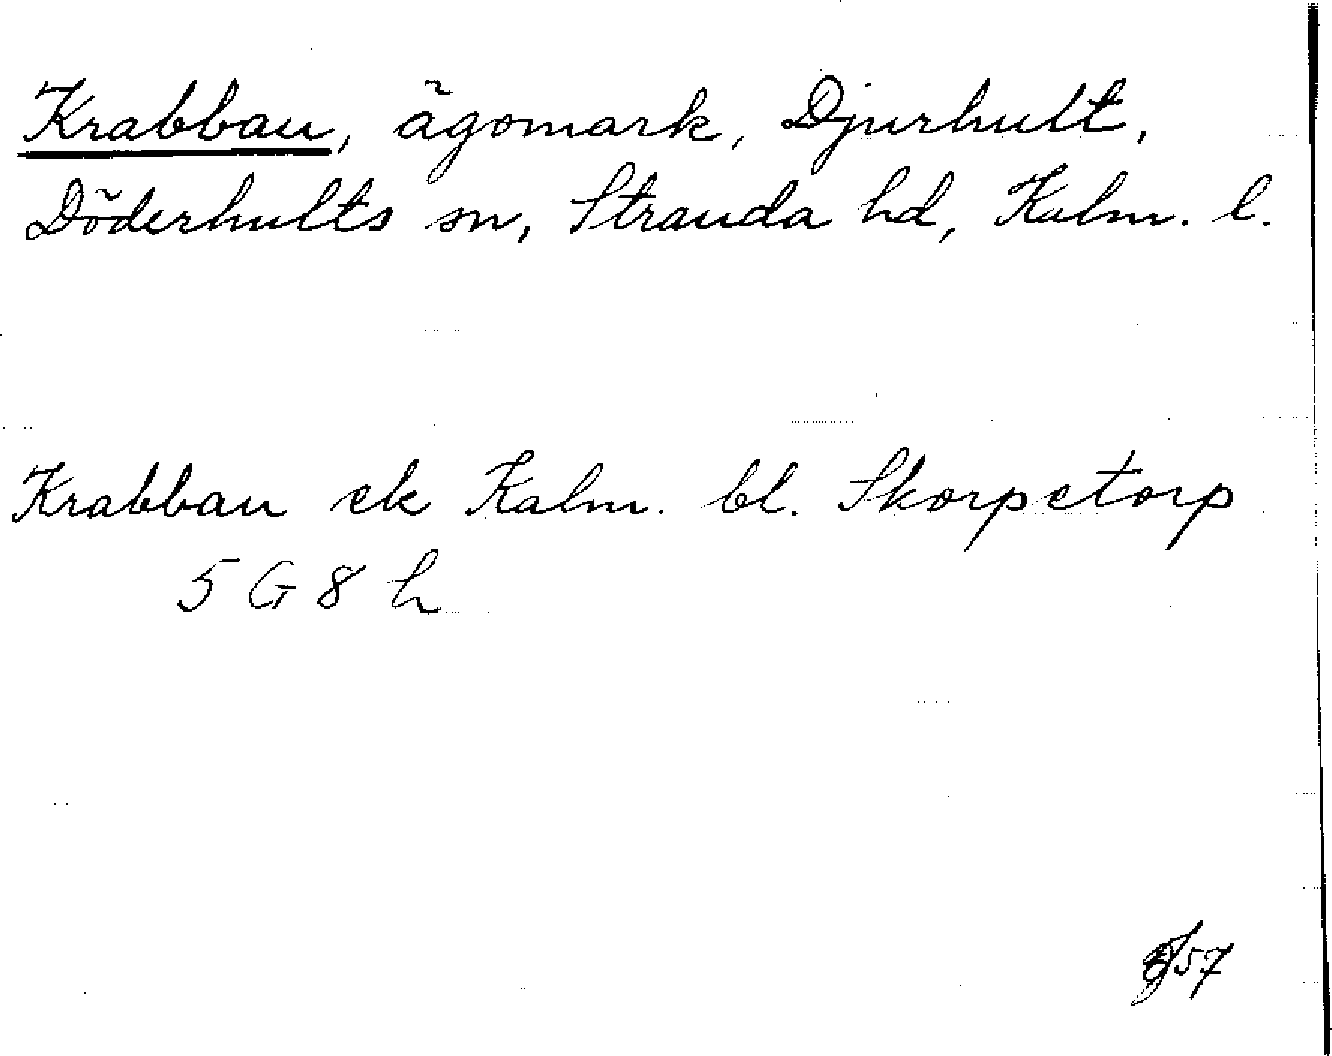 Krabban, ägomark, Djurhult,
Döderhults sn, Stranda hd, Kalm. l.
Krabban ek Kalm. bl. Skorpetorp
5 G 8 h
57